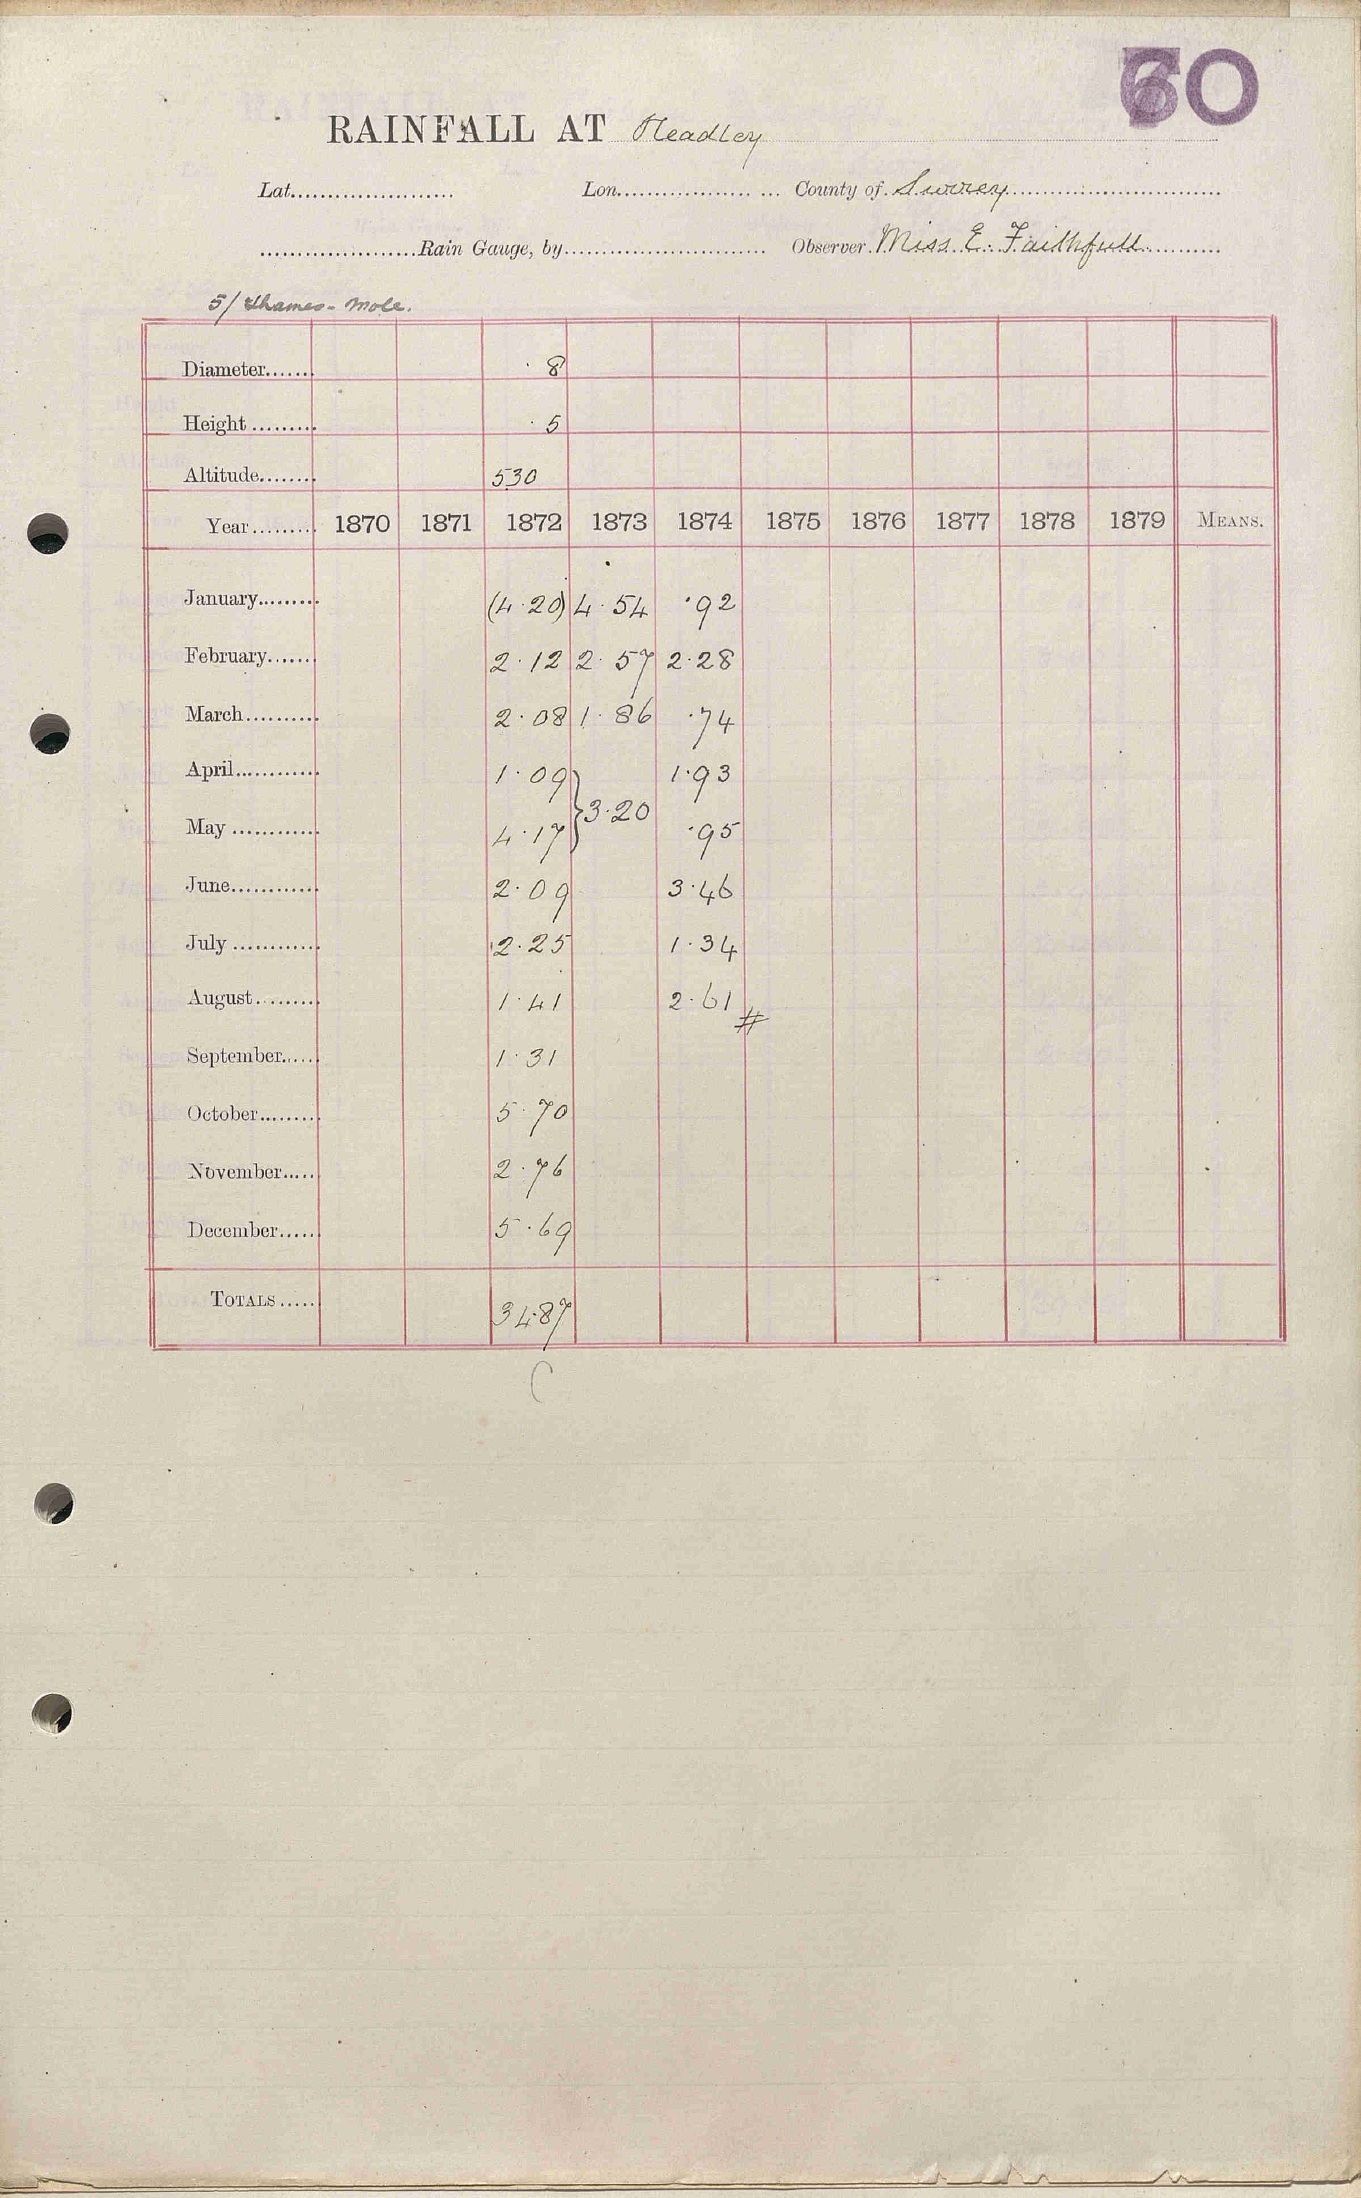 60
RAINFALL AT Headley
Lat. Lon. County of Surrey
Rain Gauge, by Observer Miss E. Faithfull
5/ Thames - Mole.
Diameter 8
Height 5
Altitude 530
Year 1870 1871 1872 1873 1874 1875 1876 1877 1878 1879 MEANS.
January (4.20) 4.54 .92
February 2.12 2.57 2.28
March 2.08 1.86 .74
April 1.09 } 3.20 1.93
May 4.17 .95
June 2.09 3.46
July 2.25 1.34
August 1.41 2.61 #
September 1.31
October 5.70
November 2.76
December 5.69
TOTALS 34.87
C